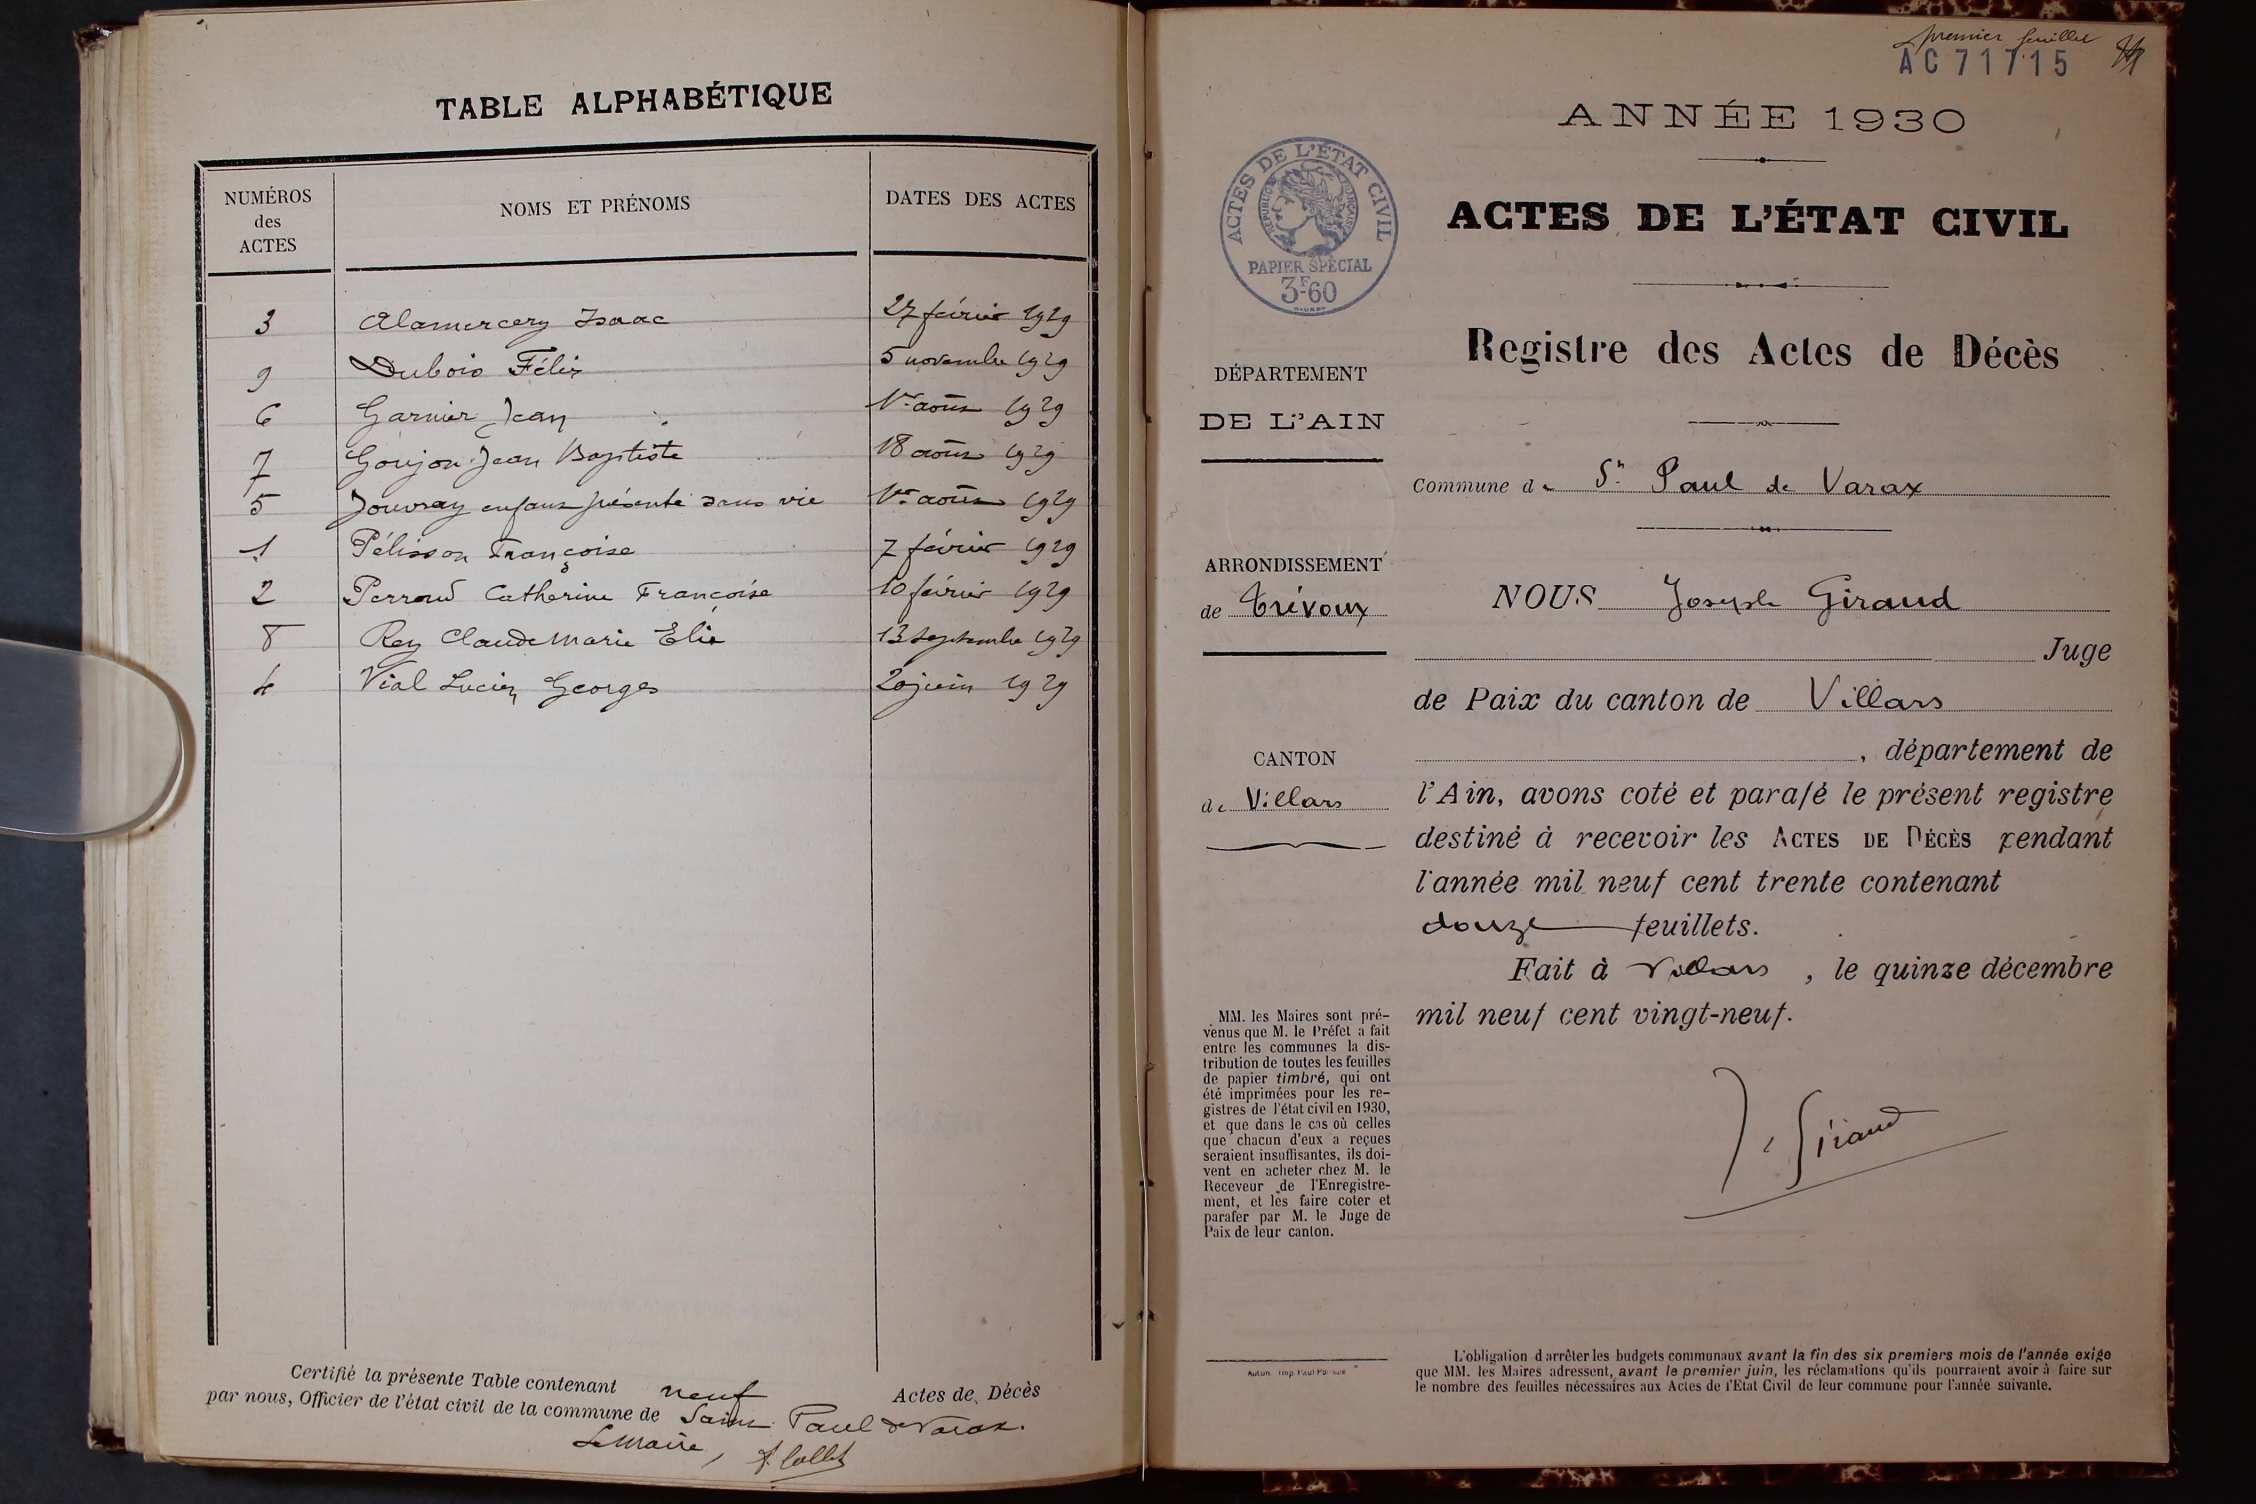 TABLE ALPHABÉTIQUE
NUMÉROS
des
ACTES
NOMS ET PRÉNOMS
DATES DES ACTES
3 Alamercery Isaac 27 février 1929
9 Dubois Félix 5 novembre 1929
6 Garnier Jean 1er août 1929
7 Goujon Jean Baptiste 18 août 1929
5 Jouvray enfant présenté sans vie 1er août 1929
1 Pélisson Françoise 7 février 1929
2 Perroud Catherine Françoise 10 février 1929
8 Rey Claude Marie Elie 13 septembre 1929
4 Vial Lucien Georges 20 juin 1929
Certifié la présente Table contenant neuf Actes de Décès
par nous, Officier de l'état civil de la commune de Saint Paul de Varax.
Le Maire,
premier feuillet
AC 71715
ANNÉE 1930
ACTES DE L'ÉTAT CIVIL
RÉPUBLIQUE FRANÇAISE
PAPIER SPÉCIAL
3F60
ACTES DE L'ÉTAT CIVIL
Registre des Actes de Décès
DÉPARTEMENT
DE L'AIN
Commune de St Paul de Varax
ARRONDISSEMENT
de Trévoux
NOUS Joseph Giraud
Juge
de Paix du canton de Villars
CANTON
de Villars
, département de
l'Ain, avons coté et parafé le présent registre
destiné à recevoir les ACTES DE DÉCÈS pendant
l'année mil neuf cent trente contenant
douze feuillets.
Fait à Villars , le quinze décembre
mil neuf cent vingt-neuf.
J. Giraud
MM. les Maires sont pré-
venus que M. le Préfet a fait
entre les communes la dis-
tribution de toutes les feuilles
de papier timbré, qui ont
été imprimées pour les re-
gistres de l'état civil en 1930,
et que dans le cas où celles
que chacun d'eux a reçues
seraient insuffisantes, ils doi-
vent en acheter chez M. le
Receveur de l'Enregistre-
ment, et les faire coter et
parafer par M. le Juge de
Paix de leur canton.
L'obligation d'arrêter les budgets communaux avant la fin des six premiers mois de l'année exige
que MM. les Maires adressent, avant le premier juin, les réclamations qu'ils pourraient avoir à faire sur
le nombre des feuilles nécessaires aux Actes de l'Etat Civil de leur commune pour l'année suivante.